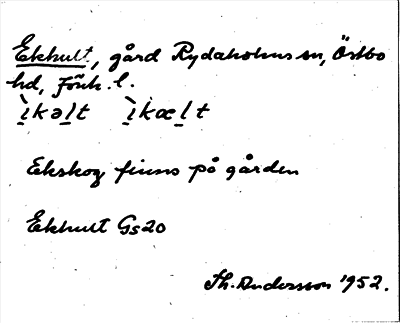 Ekhult, gård Rydaholms sn, Östbo
hd, Jönk. l.
ìkəl̠t ìkæl̠t
Ekskog finns på gården
Ekhult Gs20
Th. Andersson 1952.